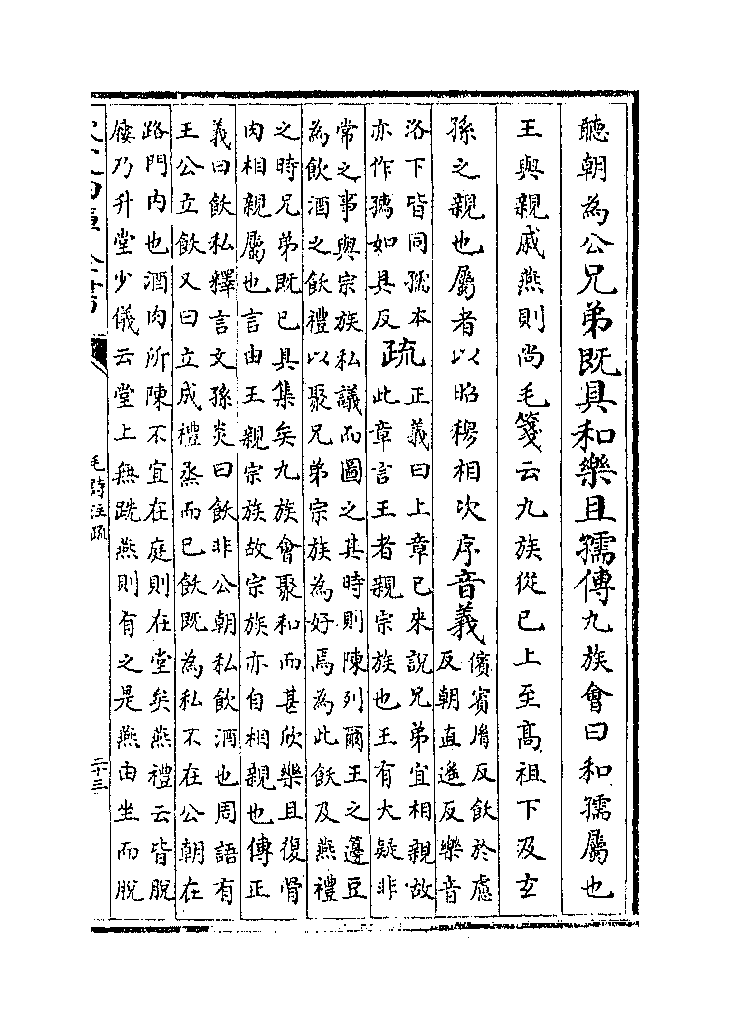 聽朝為公兄弟既具和樂且孺傳九族會曰和孺屬也
王與親戚燕則尚毛箋云九族從已上至髙祖下及玄
孫之親也屬者以昭穆相次序音義
儐賓脩反飫於慮
反朝直遥反樂音
洛下皆同孺本
亦作孺如具反
疏
正義曰上章已來說兄弟宜相親故
此章言王者親宗族也王有大疑非
常之事與宗族私議而圖之其時則陳列爾王之籩豆
為飲酒之飫禮以聚兄弟宗族為好焉為此飫及燕禮
之時兄弟既已具集矣九族會聚和而甚欣樂且復骨
肉相親屬也言由王親宗族故宗族亦自相親也傳正
義曰飫私釋言文孫炎曰飫非公朝私飲酒也周語有
王公立飫又曰立成禮烝而已飫既為私不在公朝在
路門内也酒肉所陳不宜在庭則在堂矣燕禮云皆脫
屨乃升堂少儀云堂上無跣燕則有之是燕由坐而脫
毛詩注疏
二十三